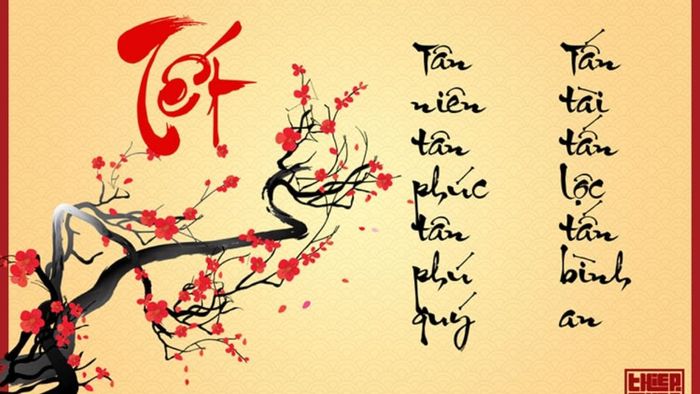 Tết
Tân
niên
tân
phúc
tân
phú
quý
Tấn
tài
tấn
lộc
tấn
bình
an
THIỆP